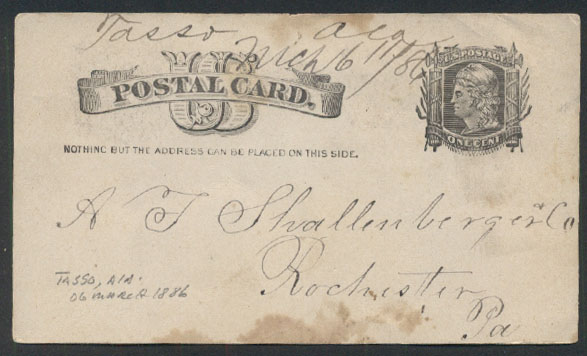 Tasso Ala
Mch 6 1886
US
POSTAL CARD.
U.S. POSTAGE
ONE CENT
NOTHING BUT THE ADDRESS CAN BE PLACED ON THIS SIDE.
A T Shallenberger & Co
Rochester
Pa
TASSO, ALA.
06 MARCH 1886